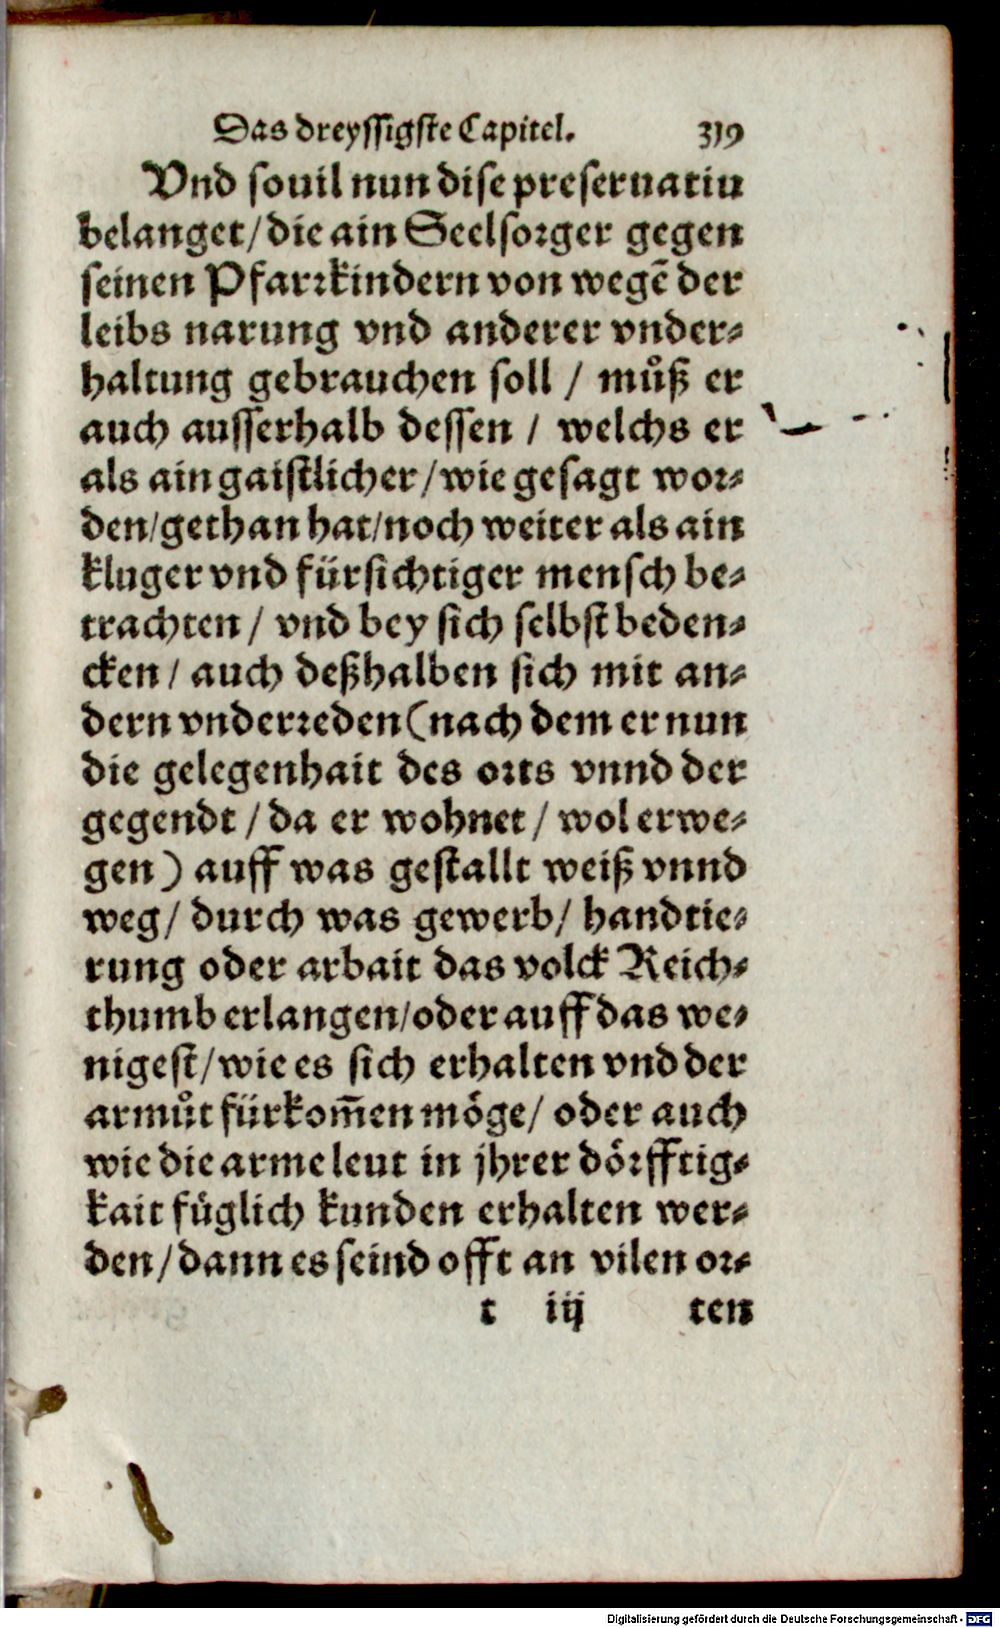 Das dreyssigste Capitel. 319
Vnd souil nun dise preseruatiu
belanget/die ain Seelsorger gegen
seinen Pfarrkindern von wegē der
leibs narung vnd anderer vnder-
haltung gebrauchen soll / můß er
auch ausserhalb dessen / welchs er
als ain gaistlicher/wie gesagt wor-
den/gethan hat/noch weiter als ain
kluger vnd fürsichtiger mensch be-
trachten / vnd bey sich selbst beden-
cken / auch deßhalben sich mit an-
dern vnderreden (nach dem er nun
die gelegenhait des orts vnnd der
gegendt / da er wohnet / wol erwe-
gen) auff was gestallt weiß vnnd
weg/ durch was gewerb/ handtie-
rung oder arbait das volck Reich-
thumb erlangen/oder auff das we-
nigest/wie es sich erhalten vnd der
armůt fürkom̄en möge/ oder auch
wie die arme leut in jhrer dörfftig-
kait füglich kunden erhalten wer-
den/dann es seind offt an vilen or-
t iij ten
Digitalisierung gefördert durch die Deutsche Forschungsgemeinschaft - DFG